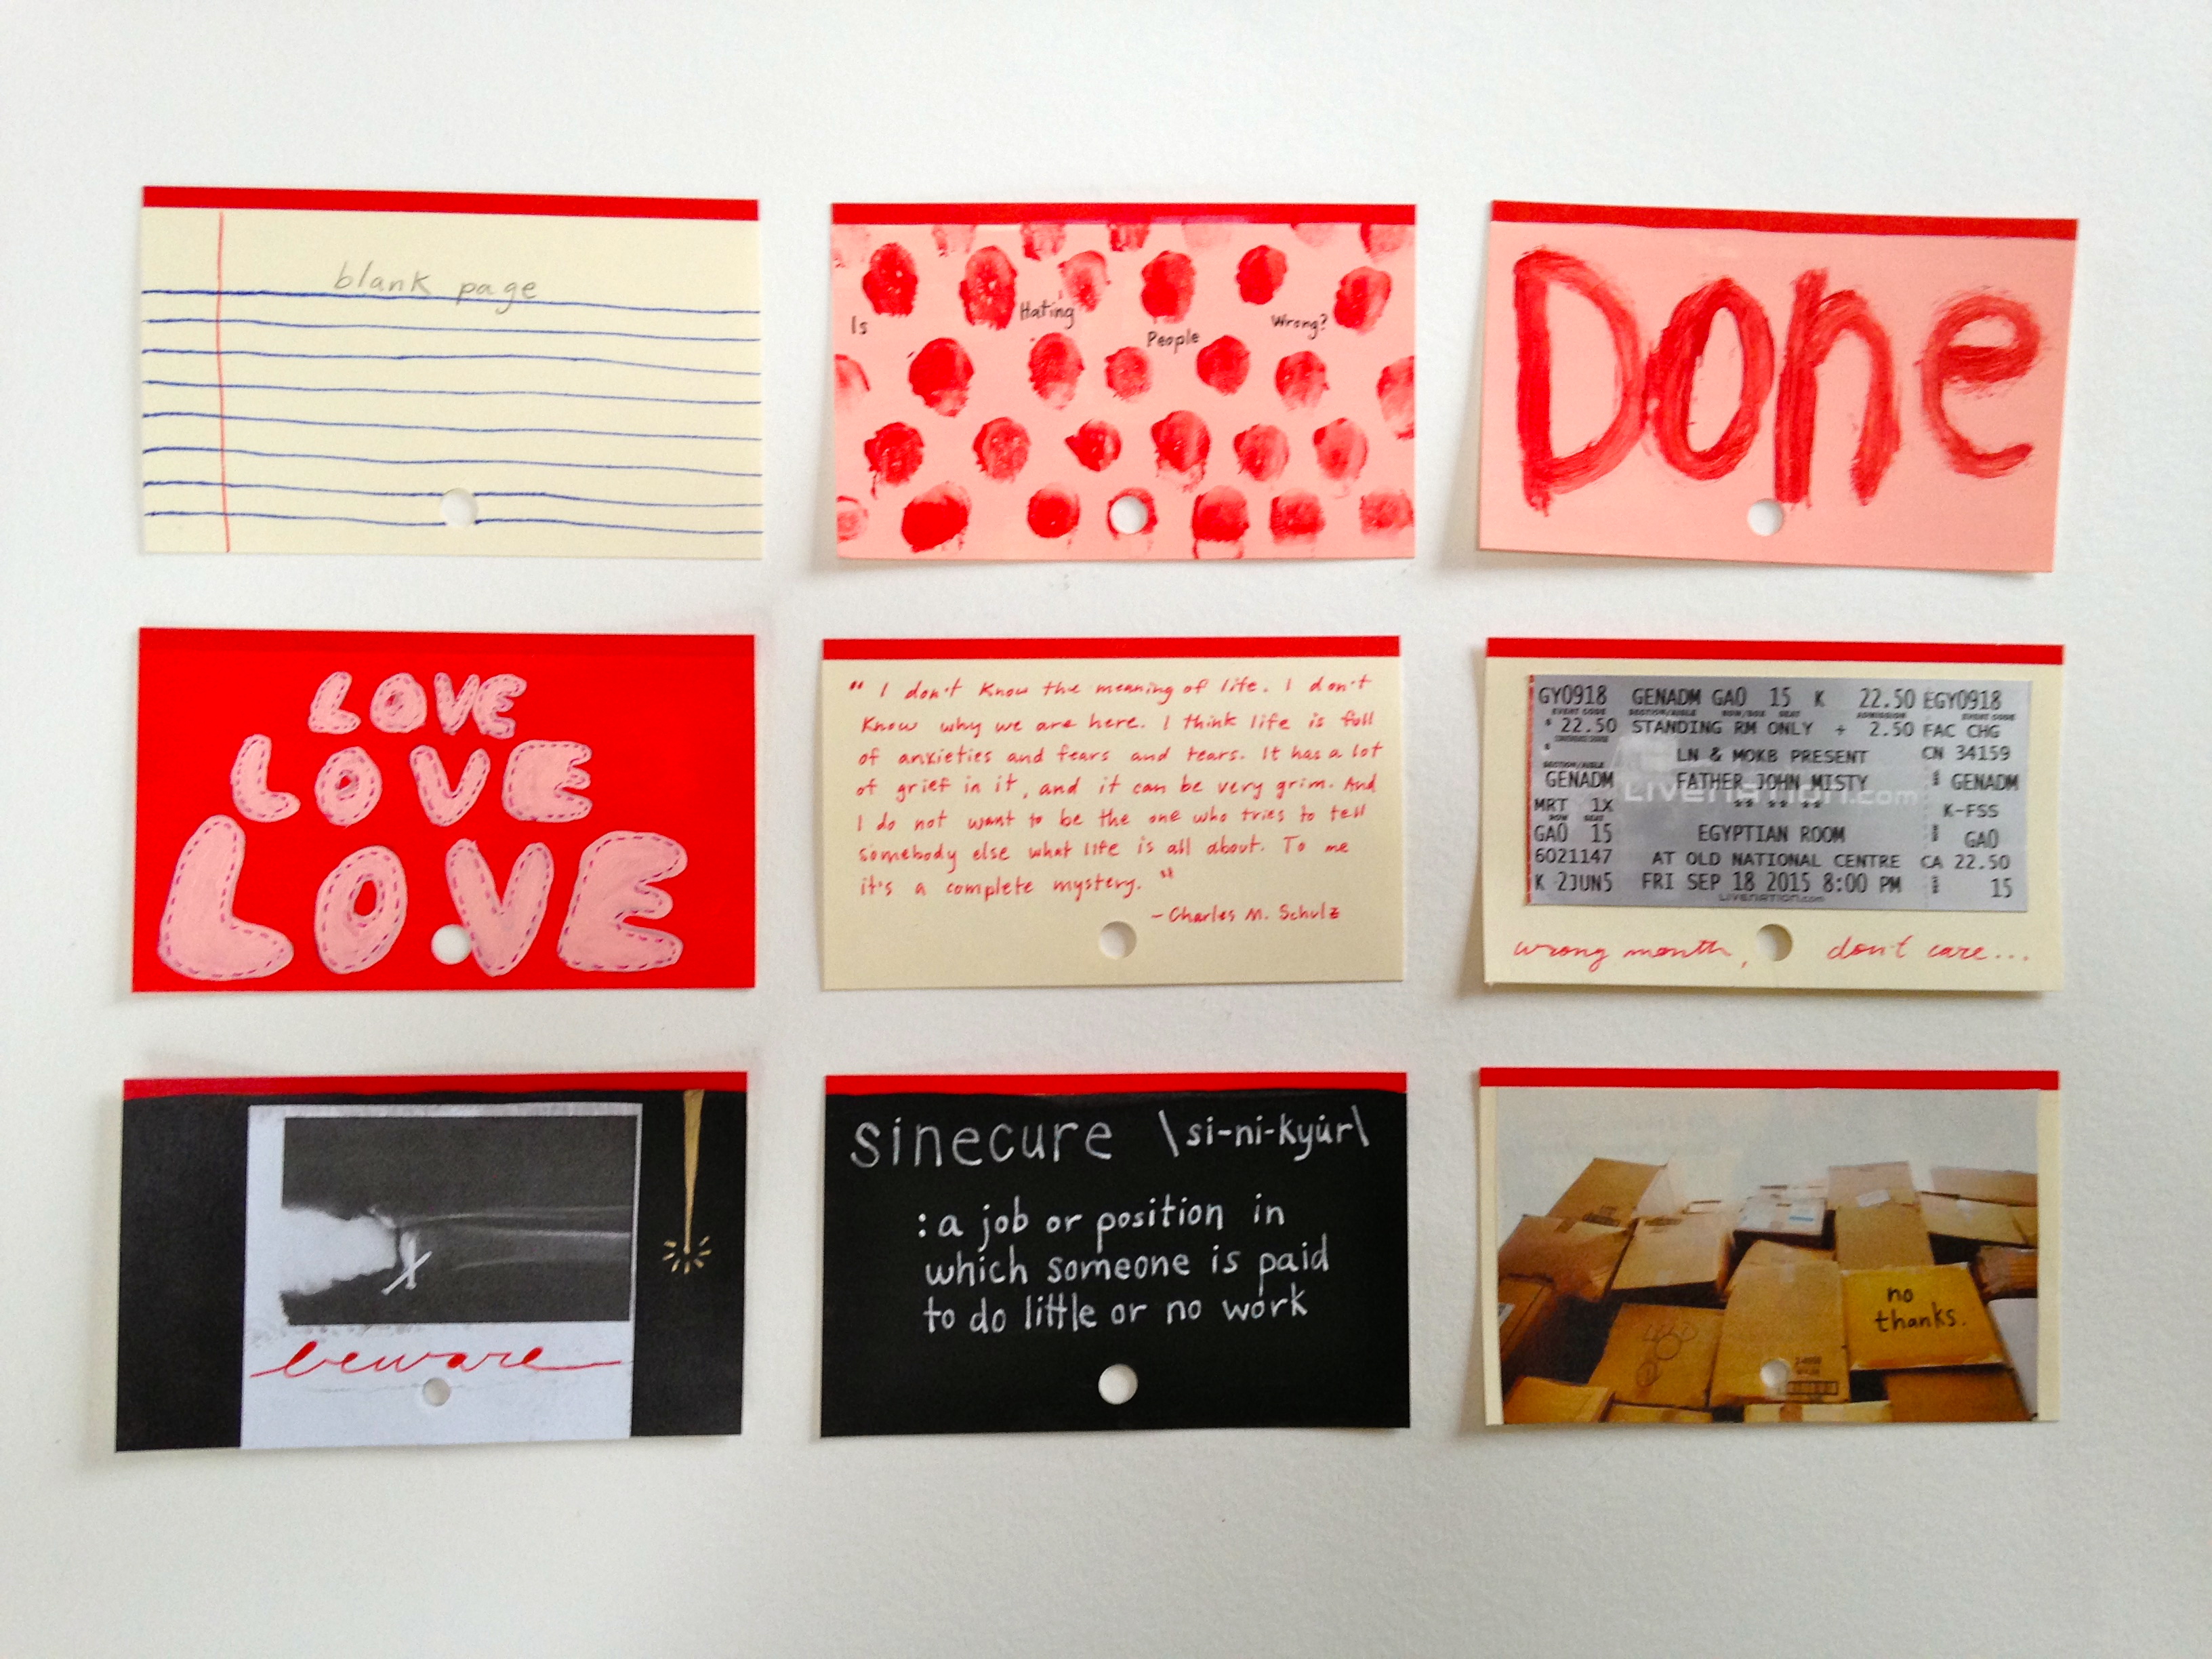 blank page
Is Hating People Wrong?
Done
LOVE
LOVE
LOVE
" I don't know the meaning of life. I don't
know why we are here. I think life is full
of anxieties and fears and tears. It has a lot
of grief in it, and it can be very grim. And
I do not want to be the one who tries to tell
somebody else what life is all about. To me
it's a complete mystery. "
- Charles M. Schulz
GY0918 GENADM GA0 15 K 22.50 EGY0918
$ 22.50 STANDING RM ONLY + 2.50 FAC CHG
LN & MOKB PRESENT CN 34159
GENADM FATHER JOHN MISTY GENADM
LIVENATION.com
MRT 1X ** ** ** K-FSS
GA0 15 EGYPTIAN ROOM GA0
6021147 AT OLD NATIONAL CENTRE CA 22.50
K 2JUN5 FRI SEP 18 2015 8:00 PM 15
LIVENATION.com
wrong month, don't care...
beware
sinecure \si-ni-kyur\
: a job or position in
which someone is paid
to do little or no work
no
thanks.